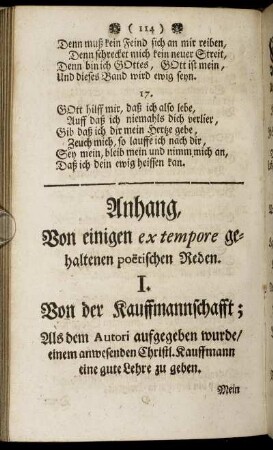 ( 114 )
Denn muß kein Feind sich an mir reiben,
Denn schrecket mich kein neuer Streit,
Denn bin ich GOttes, GOtt ist mein,
Und dieses Band wird ewig seyn.
17.
GOtt hilff mir, daß ich also lebe,
Auff daß ich niemahls dich verlier,
Gib daß ich dir mein Hertze gebe,
Zeuch mich, so lauffe ich nach dir,
Sey mein, bleib mein und nimm mich an,
Daß ich dein ewig heissen kan.
Anhang,
Von einigen ex tempore ge-
haltenen poëtischen Reden.
I.
Von der Kauffmannschafft;
Als dem Autori aufgegeben wurde/
einem anwesenden Christl. Kauffmann
eine gute Lehre zu geben.
Mein